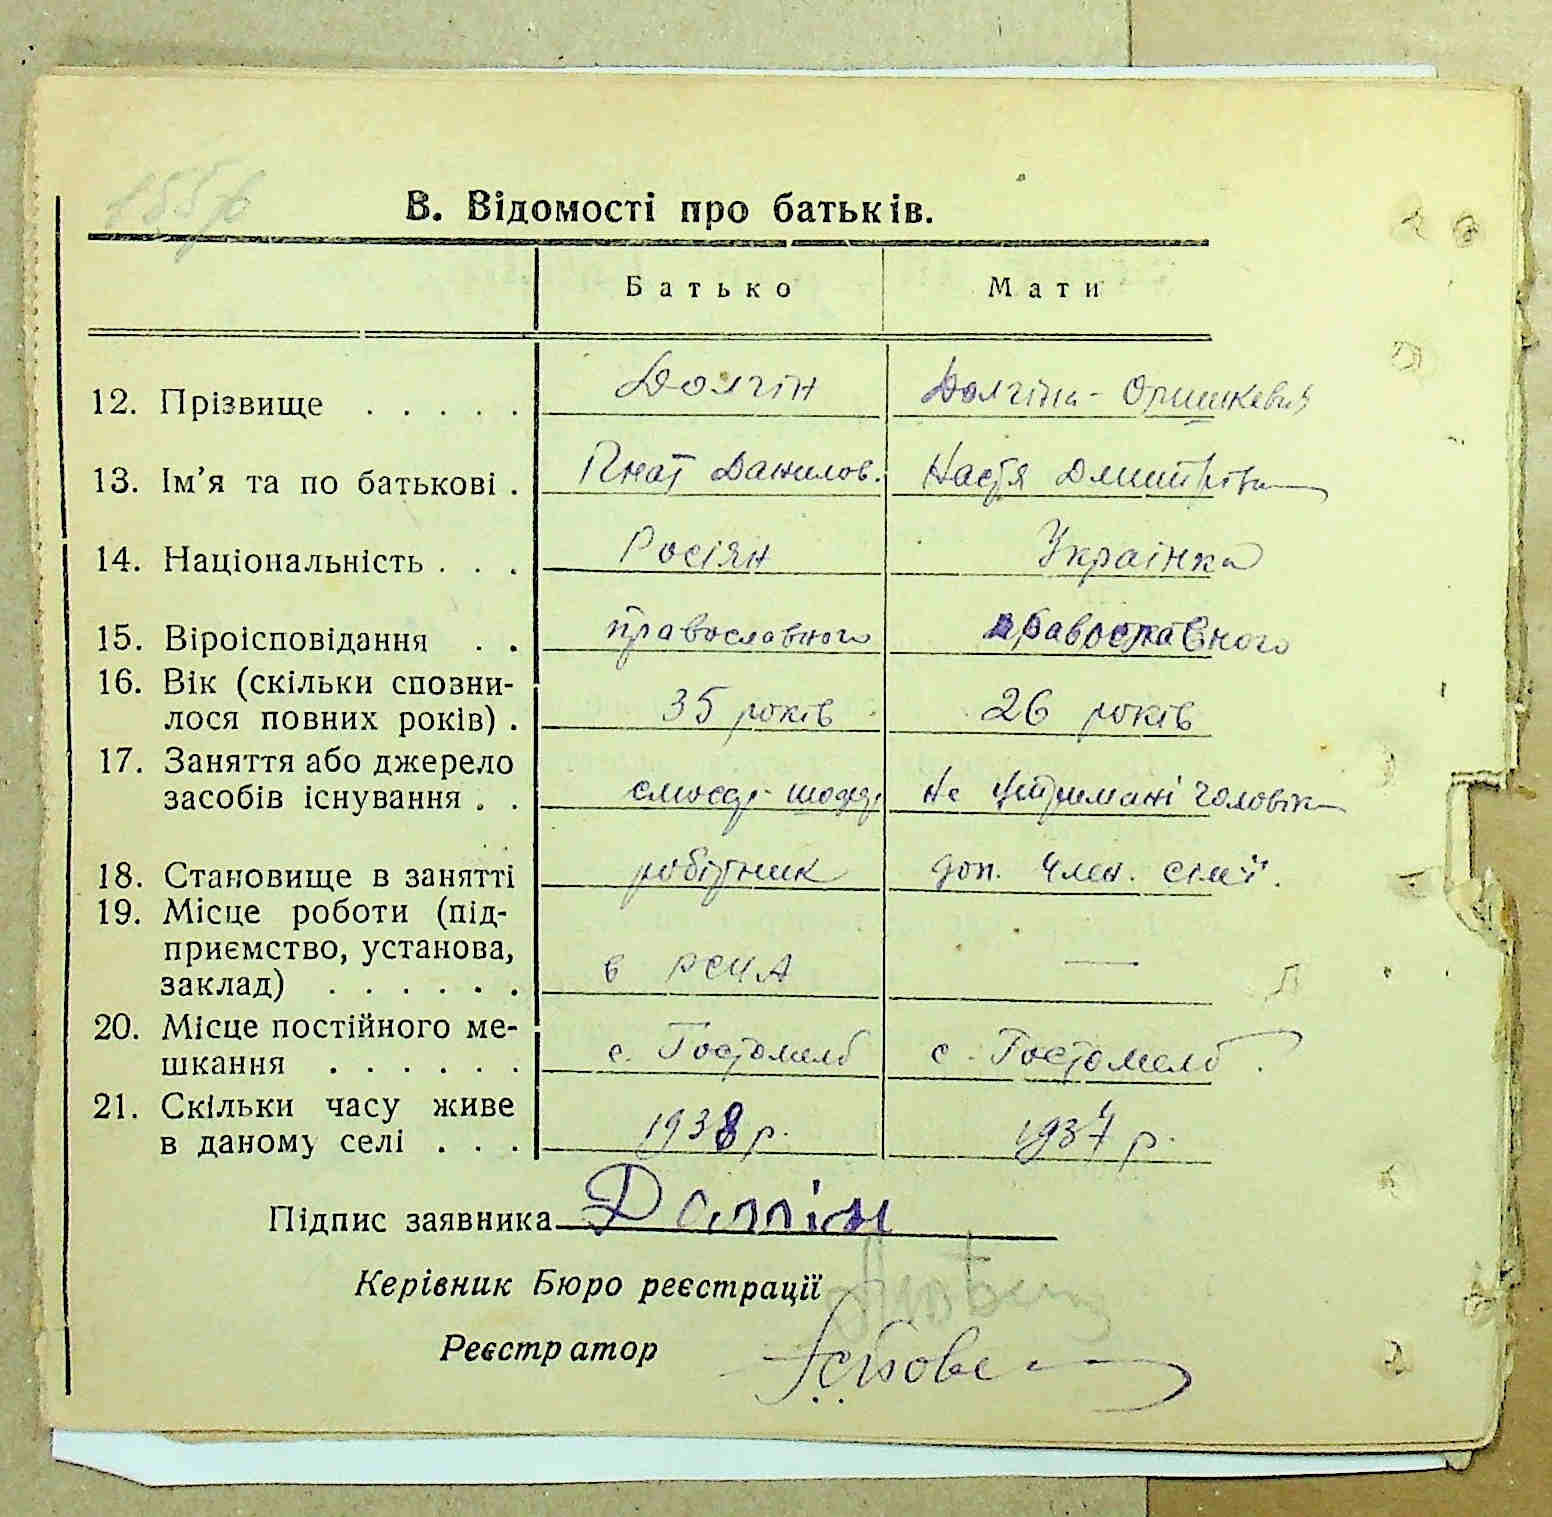 В. Відомості про батьків.
Батько Мати
12. Прізвище . . . . . Долгін Долгіна-Оришкевич
13. Ім'я та по батькові . Гнат Данилов. Настя Дмитрівна
14. Національність . . . Росіян Українка
15. Віроісповідання . . православного православного
16. Вік (скільки спозни-
лося повних років) . 35 років 26 років
17. Заняття або джерело
засобів існування . . слюсар-шофер На утримані чоловіка
18. Становище в занятті робітник доп. член. сімї.
19. Місце роботи (під-
приємство, установа,
заклад) . . . . . . в РСЧА —
20. Місце постійного ме-
шкання . . . . . . с. Гостомель с. Гостомель.
21. Скільки часу живе
в даному селі . . . 1938 р. 1937 р.
Підпис заявника Долгін
Керівник Бюро реєстрації
Реєстратор